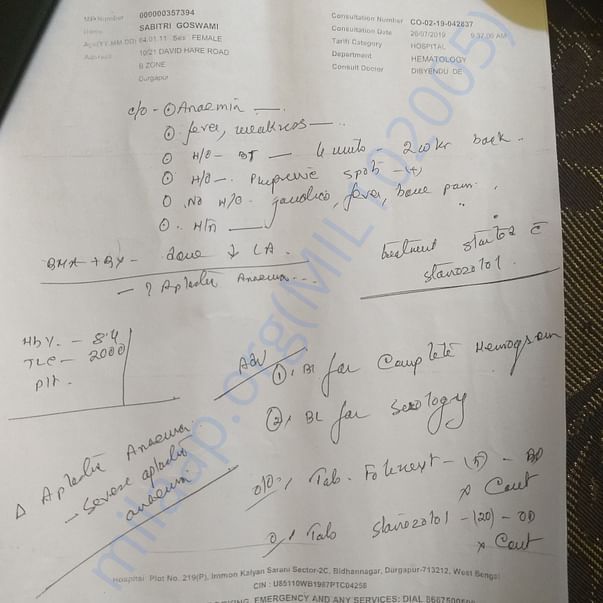 MR Number 000000357394
Name SABITRI GOSWAMI
Age(YY.MM.DD) 64.01.11 Sex FEMALE
Address 10/21 DAVID HARE ROAD
B ZONE
Durgapur
Consultation Number CO-02-19-042837
Consultation Date 26/07/2019 9:37:00 AM
Tariff Category HOSPITAL
Department HEMATOLOGY
Consult Doctor DIBYENDU DE
c/o - Anaemia
fever, weakness
H/O - BT - 4 units - 2 back
H/O - spots (+)
No H/O jaundice, fever, bone pain
HTN
BMA + BX - done ↓ LA.
- ? Aplastic Anaemia...
treatment started c̄
stanozolol.
Hb%. - 8.4
TLC - 2000
Plt.
Adv
1. Bl for Complete Hemogram
2. BL for Serology
Δ Aplastic Anaemia
- Severe aplastic
anaemia
Tab. - (5) - BD
x Cont
Tab Stanozolol - (20) - OD
x Cont
milaap.org(MIL1020065)
Hospital: Plot No. 219(P), Immon Kalyan Sarani Sector-2C, Bidhannagar, Durgapur-713212, West Bengal
CIN : U85110WB1987PTC04256
EMERGENCY AND ANY SERVICES: DIAL